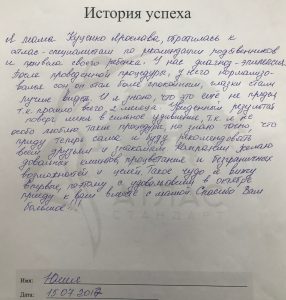 История успеха
Я мама Куценко Ярослава, обратилась к
атлас-специалистам по рекомендации родственников
и привела своего ребенка. У нас диагноз-эпилепсия.
После проведенной процедуры, у него нормализо-
вался сон, он стал более спокойным, глазки стали
лучше видеть. И я знаю, что это ещё не предел
т.к. прошло всего 2 месяца. Увиденный результат
поверг меня в сильное удивление, т.к. я не
особо люблю такие процедуры, но знаю точно, что
приду теперь сама и буду рекомендовать
всем друзьям и знакомым. Компании желаю
клиентов, процветания и безграничных
возможностей и целей. Такое чудо я вижу
впервые, поэтому с удовольствием в октябре
приеду к Вам вместе с мамой. Спасибо Вам
большое!
СТАНДАРТ
Имя: Юлия
Дата: 15.07.2017